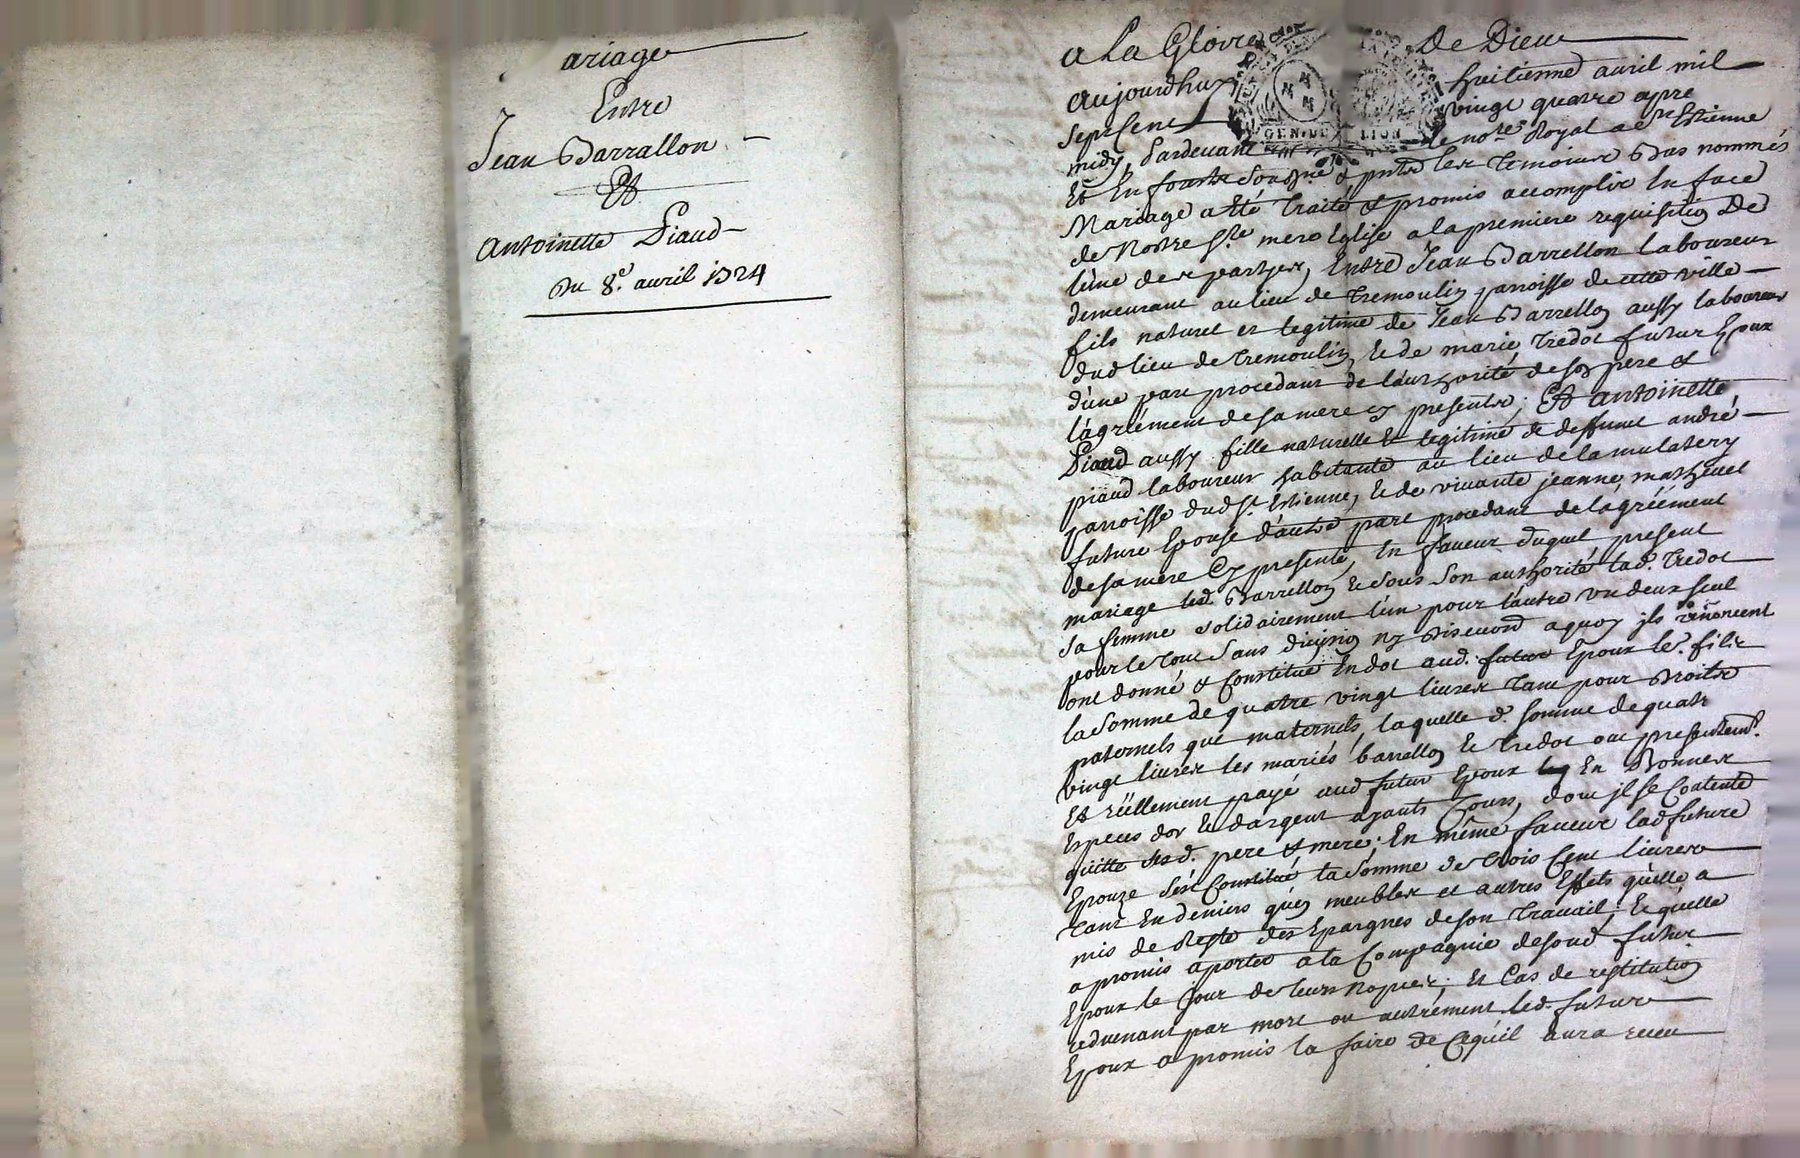 ariage
Entre
Jean Barrallon
Et
Antoinette Piaud
Du 8e. avril 1724
a La Gloire De Dieu
Aujourdhuy huitienne avril mil
sept Cent vingt quatre apre
midy, Pardevant le nore. Royal a St Estienne
Et En fourestz Sousné. & pntz les Temoins Bas nommés
Mariage a Eté Traité & promis accomplir En face
de Nostre Ste mere Eglise a la premiere requisitiõ De
lune des partyes, Entre Jean Barrellon laboureur
demeurant au lieu de Tremoulin parroisse de cette ville
fils naturel et legitime de Jean Barrellon aussy laboureur
dud lieu de Tremoulin, & de marie Tredot futur Epoux
dune part procedant de l'authorité de son pere &
lágrément de sa mere cy presents; Et Antoinette
Piaud aussy fille naturelle & legitime de deffunct andré
piaud laboureur habitante au lieu de la mulatery
parroisse dud St. Estienne, & de vivante jeanne mathevet
future Epouse d'autre part procedant de lagréement
de sa mere Cy presente, En faveur duquel present
mariage led. Barrellon & sous son authorité lad. Tredot
sa femme solidairement l'un pour l'autre un deux seul
pour le tout sans divisiõ ny Discuord a quoy ils renoncent
ont donné & Constitué En dot aud. futur Epoux le. fils
la somme de quatre vingt livres tant pour Droits
paternels que maternels, laquelle d. somme de quatr
vingt livres les mariés barrellon & Tredot ont presentemt.
Et réellement payé aud futur Epoux En Bonnes
Especes dor & dargent ayants Cours, dont jl se Contente
quitte sesd. pere & mere; En même faveur lad future
Epouze s'est Constitué la somme de trois Cent livres
tant En deniers qu'en meubles et autres Effets quelle a
mis de Reste des Epargnes de son travail; & qu'elle
a promis aporter a la Compagnie de sond futur
Epoux le jour de leurs Nopces; Et Cas de restitutiõ
advenant par mort ou autrément led. futur
Epoux a promis la faire de Cequ'il aura receu
GEN. DE LION